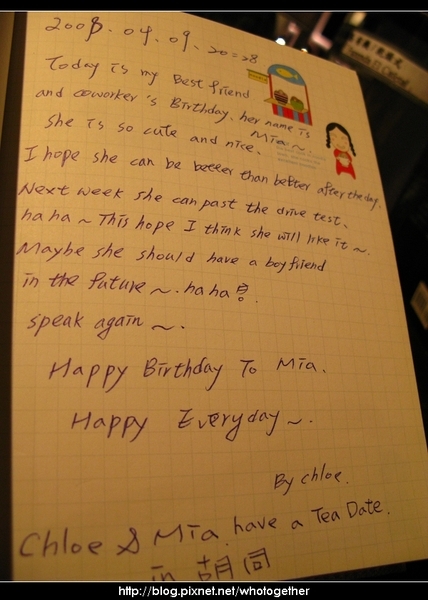 2008.04.09. 20=28
Today is my Best friend
and coworker's Birthday. her name is
Mia~.
She is so cute and nice.
I hope she can be better than better after the day.
Next week she can past the drive test.
haha~ This hope I think she will like it~.
Maybe she should have a boyfriend
in the future~. haha
speak again~.
Happy Birthday To Mia.
Happy Everyday~.
By chloe.
Chloe & Mia. have a Tea Date.
in 胡同
http://blog.pixnet.net/whotogether